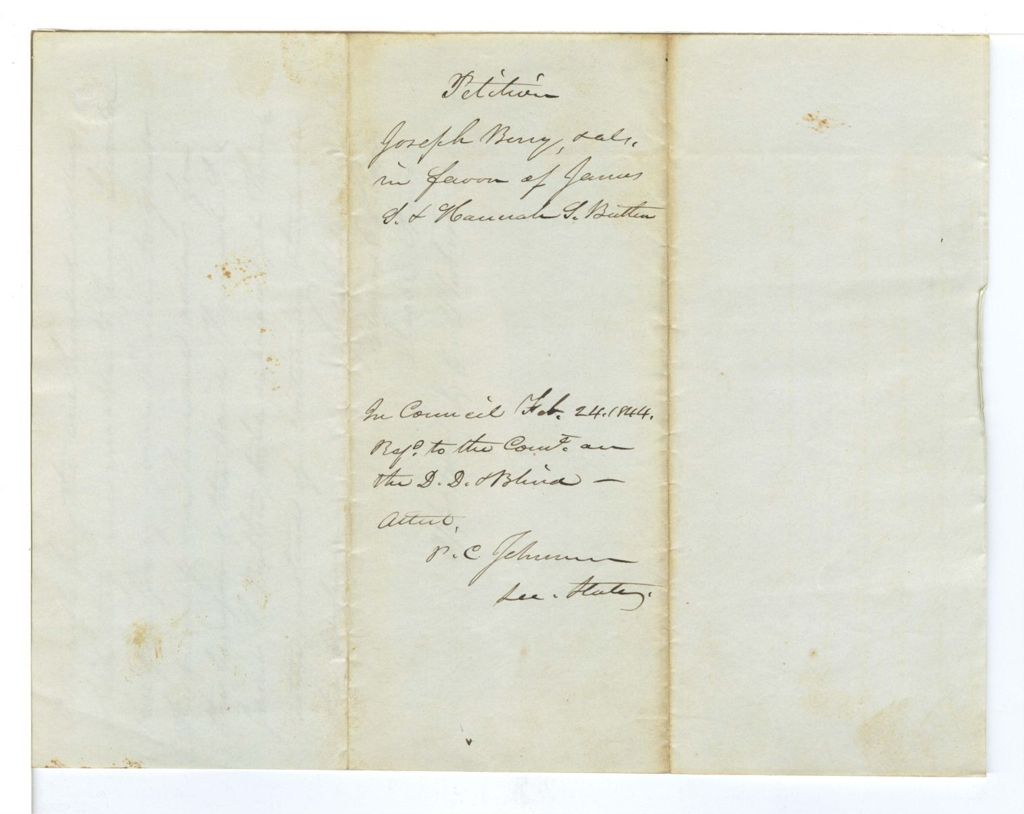 Petition
Joseph Berry, & als.
in favor of James
S. & Hannah S. Butler
In Council Feb. 24. 1844.
Refd. to the Comt. on
the D. D. & Blind —
Attest,
P. C. Johnson
Sec. State.